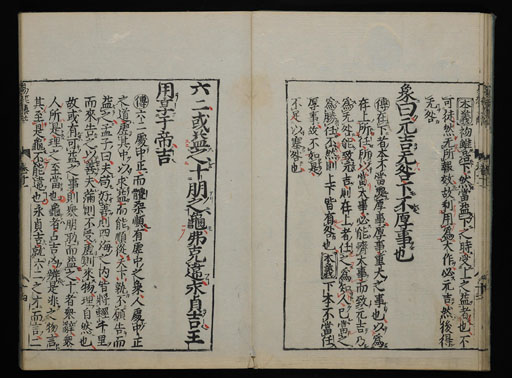 本義初雖居下然當益下之時受上之益者也不
可徒然无所報效故利用爲大作必元吉然後得
无咎
象曰元吉无咎下不厚事也
傳在下者本不當處厚事厚事重大之事也以爲
在上所任所以當大事必能濟大事而致元吉乃
爲无咎能致元吉則在上者任之爲知人己當之
爲勝任不然則上下皆有咎也本義下本不當任
厚事故不如是
不足以塞咎也
六二或益之十朋之龜弗克違永貞吉王
用享于帝吉
傳六二處中正而體柔順有虛中之象人處中正
之道虛其中以求益而能順從天下孰不願告而
益之孟子曰夫苟好善則四海之内皆將輕千里
而來告之以善夫滿則不受虛則來物理自然也
故或有可益之事則衆朋助而益之十者衆辭衆
人所是理之至當也龜者占吉凶辨是非之物言
其至是龜不能違也永貞吉就六二之才而言二